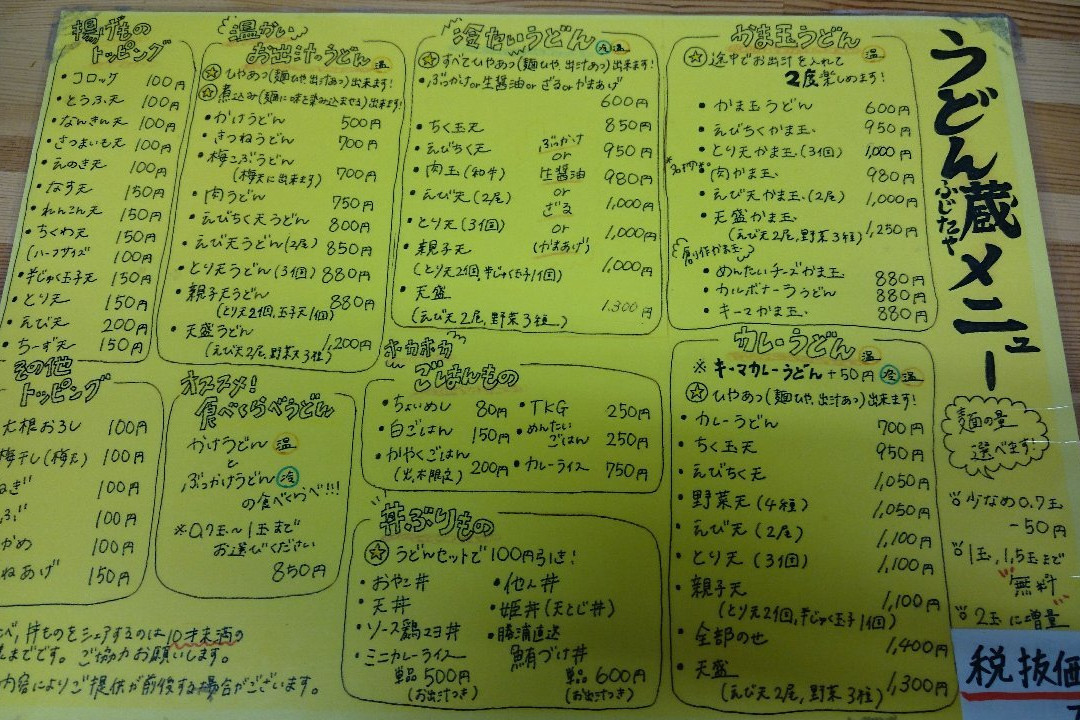 うどん蔵メニュー
ふじたや
揚げもの
トッピング
・コロッケ 100円
・とうふ天 100円
・なんきん天 100円
・さつまいも天 100円
・えのき天 100円
・なす天 150円
・れんこん天 150円
・ちくわ天 150円
(ハーフサイズ 100円
・半じゅく玉子天 150円
・とり天 150円
・えび天 200円
・ちーず天 150円
温かい
お出汁うどん 温
☆ひやあつ(麺ひや、出汁あつ)出来ます!
☆煮込み(麺に味を染み込ませる)出来ます!
・かけうどん 500円
・きつねうどん 700円
・梅こぶうどん
(梅天に出来ます) 700円
・肉うどん 750円
・えびちく天うどん 800円
・えび天うどん(2尾) 850円
・とり天うどん(3個) 880円
・親子天うどん 880円
(とり天2個,玉子天1個)
・天盛うどん 1,200円
(えび天2尾,野菜天3種)
冷たいうどん 冷 温
☆すべてひやあつ(麺ひや,出汁あつ)出来ます!
・ぶっかけor生醤油orざるorかまあげ
600円
・ちく玉天 850円
・えびちく天 950円
・肉玉(和牛) 980円
・えび天(2尾) 1,000円
・とり天(3個) 1,000円
・親子天 1,000円
(とり天2個,半じゅく玉子1個)
・天盛 1,300円
(えび天2尾,野菜3種)
ぶっかけ
or
生醤油
or
ざる
or
(かまあげ)
かま玉うどん 温
☆途中でお出汁を入れて
2度楽しめます!
・かま玉うどん 600円
・えびちくかま玉 950円
・とり天かま玉(3個) 1,000円
・肉かま玉 980円
・えび天かま玉(2尾) 1,000円
・天盛かま玉 1,250円
(えび天2尾,野菜3種)
創作かま玉
・めんたいチーズかま玉 880円
・カルボナーラうどん 880円
・キーマかま玉 880円
その他
トッピング
大根おろし 100円
梅干し(梅天) 100円
ねぎ 100円
100円
かめ 100円
ねあげ 150円
オススメ!
食べくらべうどん
かけうどん 温
と
ぶっかけうどん 冷
の食べくらべ!!!
※0.7玉〜1玉まで
お選びください
850円
ホカホカ
ごはんもの
・ちょいめし 80円
・白ごはん 150円
・かやくごはん
200円
・TKG 250円
・めんたい
ごはん 250円
・カレーライス 750円
丼ぶりもの
☆うどんセットで100円引き!
・おやこ丼
・天丼
・ソース鶏マヨ丼
・ミニカレーライス
単品500円
(お出汁つき)
・他人丼
・姫丼(天とじ丼)
・勝浦直送
鮪づけ丼
単品600円
(お出汁つき)
カレーうどん 温
※キーマカレーうどん+50円 冷 温
☆ひやあつ(麺ひや,出汁あつ)出来ます!
・カレーうどん 700円
・ちく玉天 950円
・えびちく天 1,050円
・野菜天(4種) 1,050円
・えび天(2尾) 1,100円
・とり天(3個) 1,100円
・親子天 1,100円
(とり天2個,半じゅく玉子1個)
・全部のせ 1,400円
・天盛 1,300円
(えび天2尾,野菜3種)
麺の量
選べます!
少なめ0.7玉
-50円
1玉,1.5玉まで
無料
2玉に増量
税抜価
べ,丼ものをシェアするのは10才未満の
までです。ご協力お願いします。
内容によりご提供が前後する場合がございます。